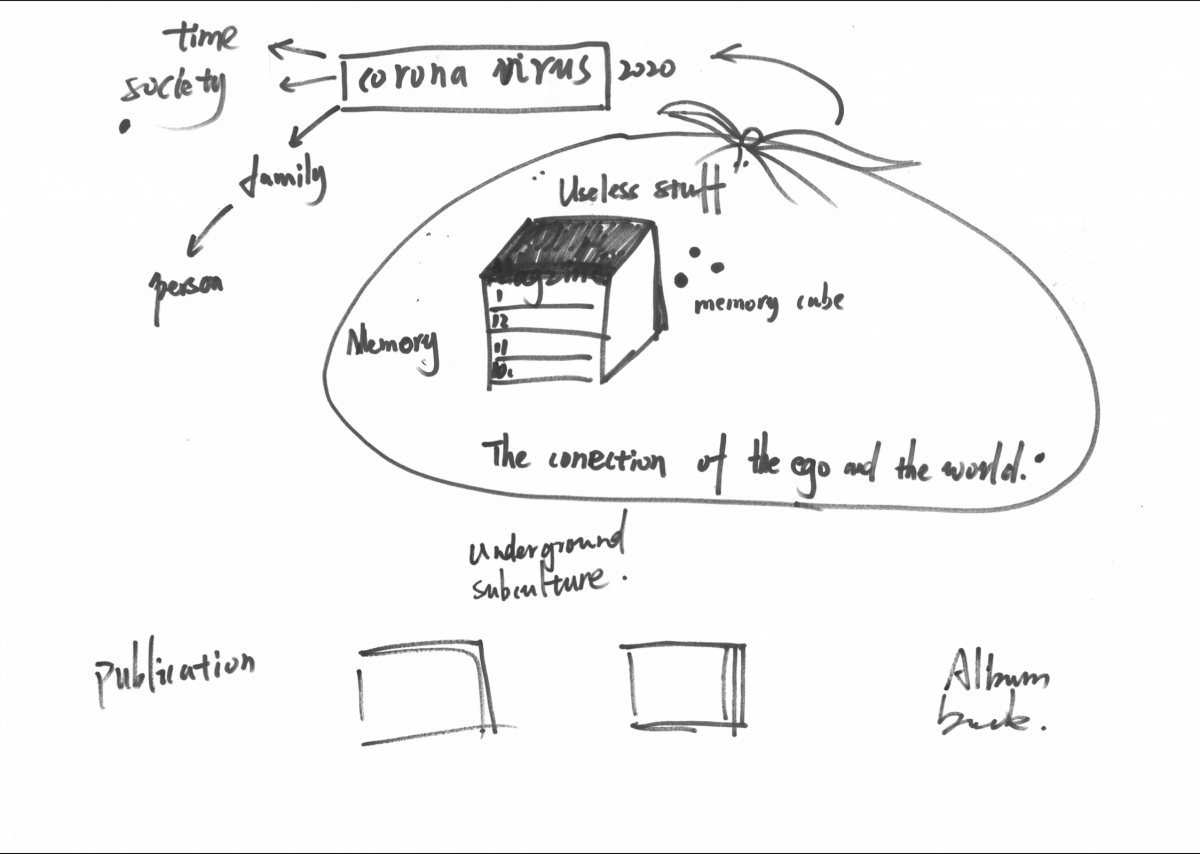 time
society
corona virus
2020
family
person
Useless stuff
Magzine
1
12
11
10.
memory cube
Memory
The conection of the ego and the world.
underground
subculture.
publication
Album